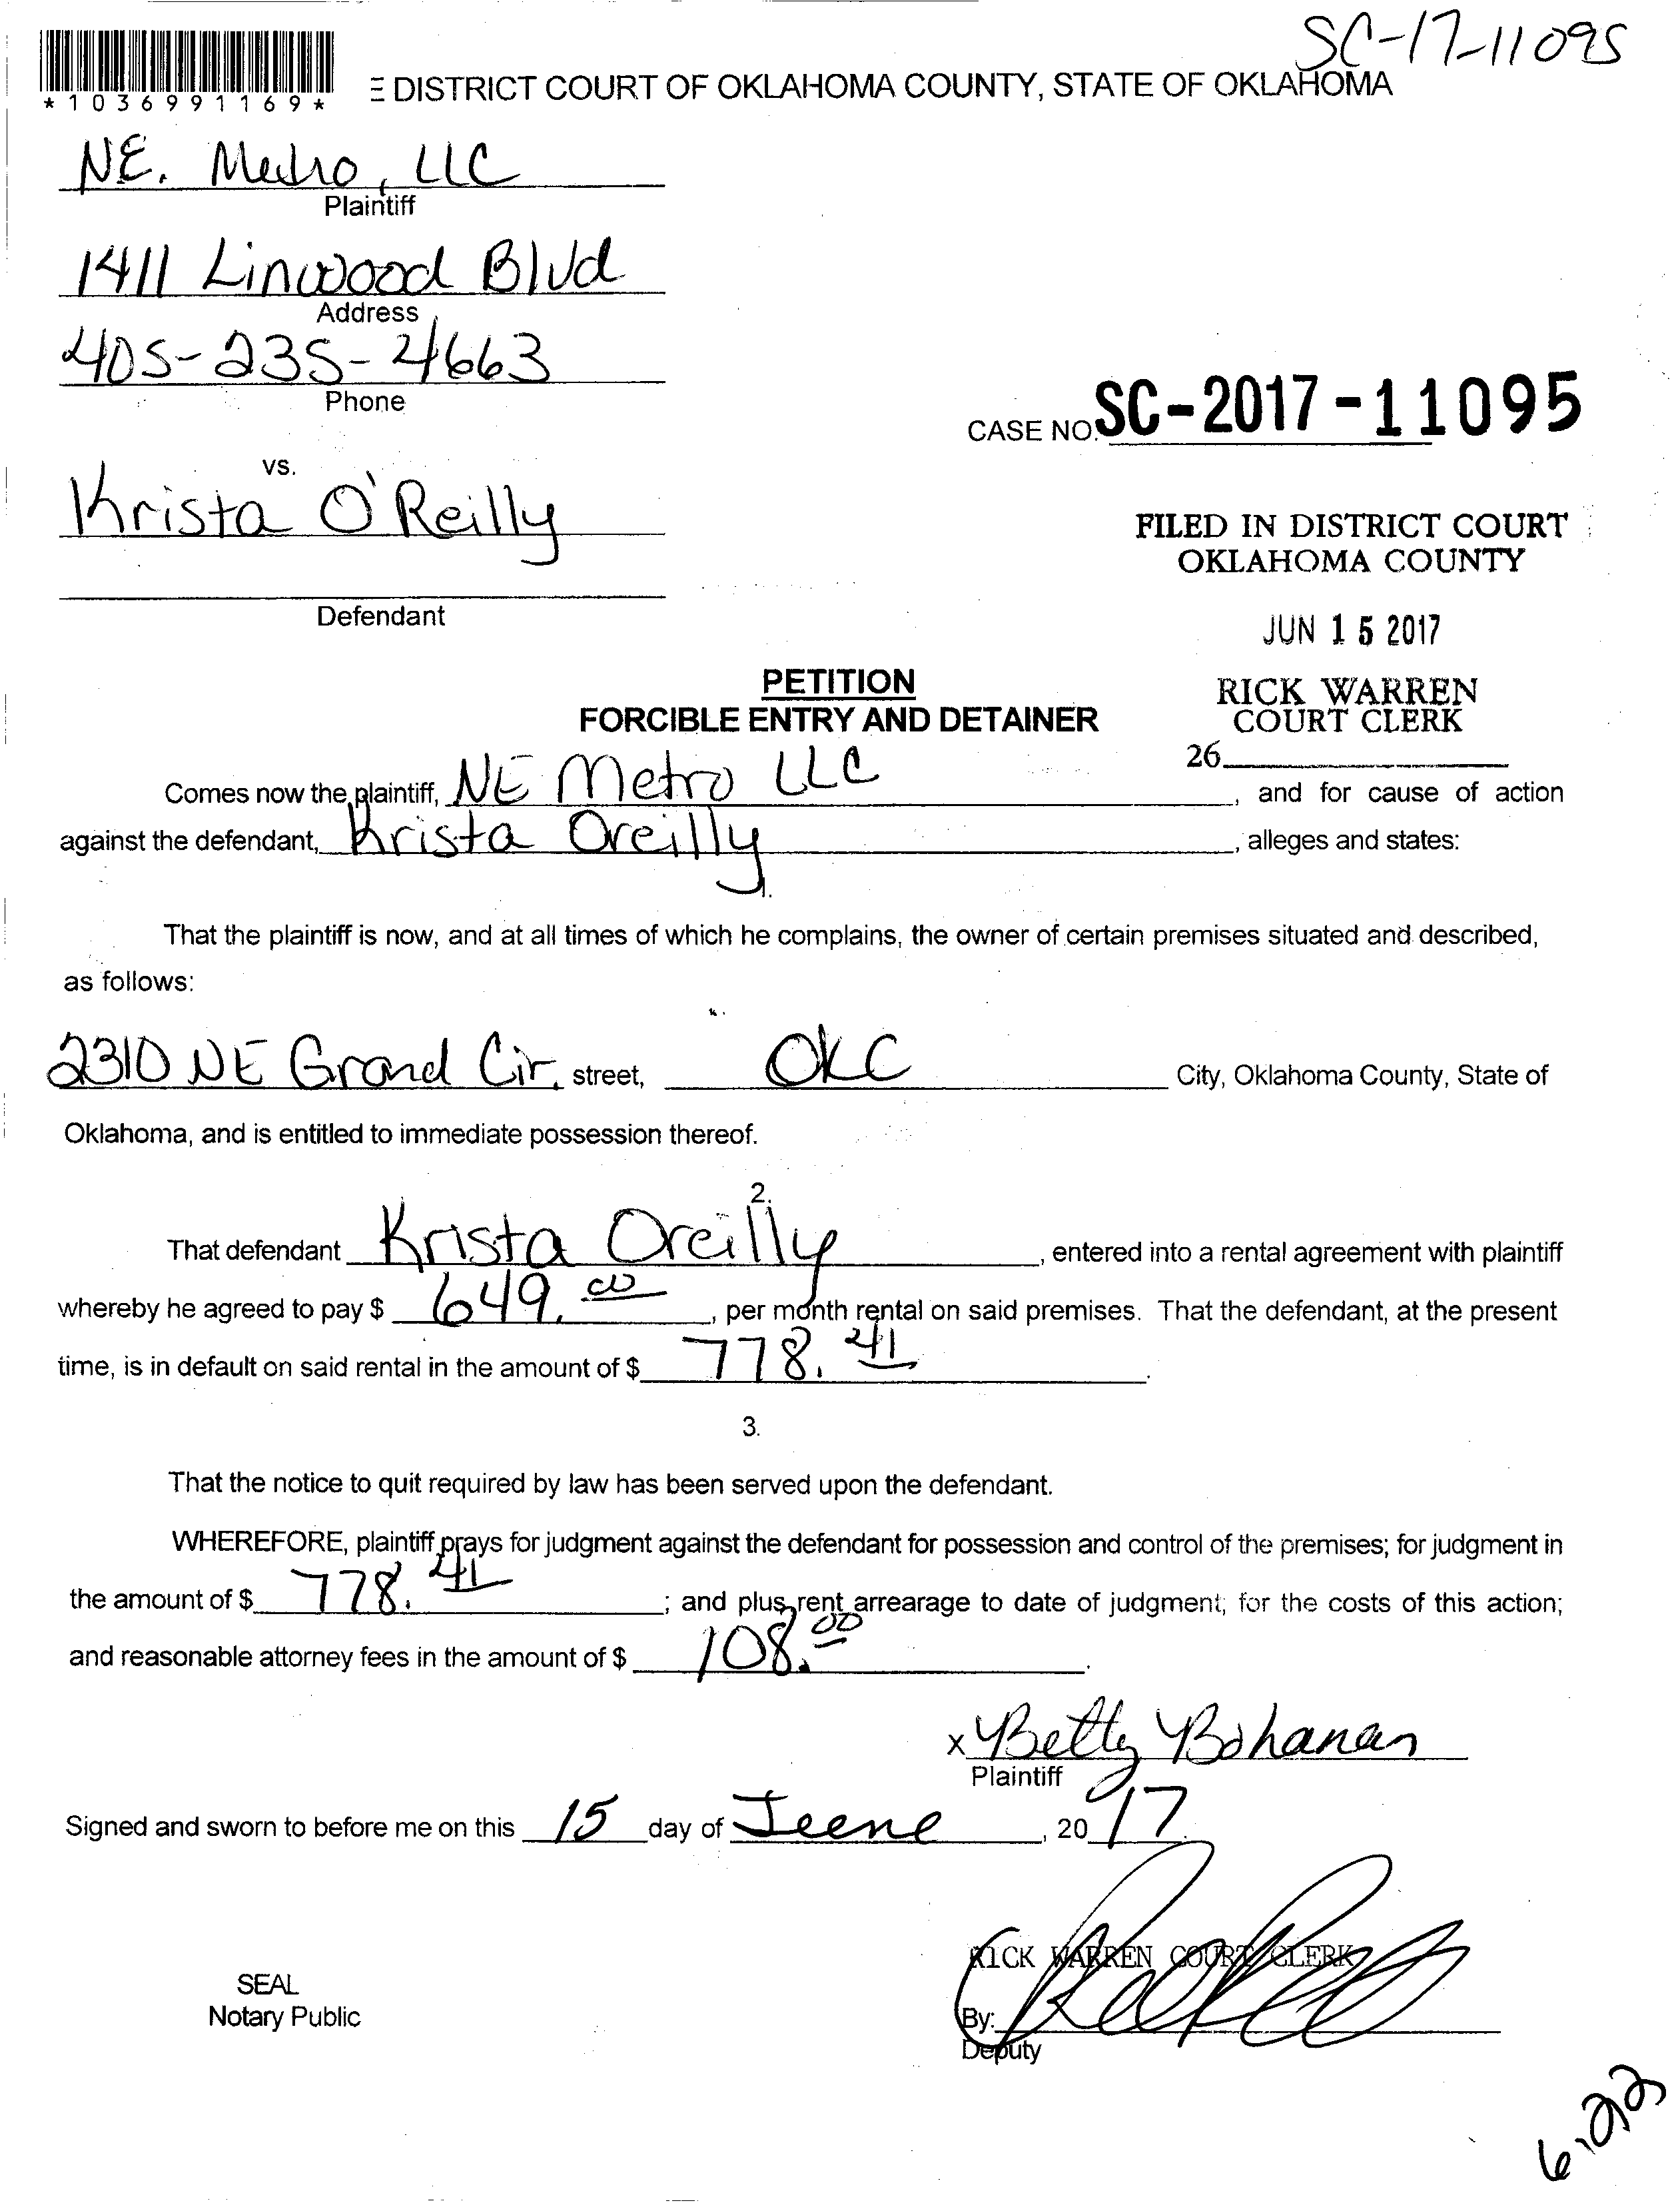 SC-17-11095
*1036991169*
E DISTRICT COURT OF OKLAHOMA COUNTY, STATE OF OKLAHOMA
NE. Metro, LLC
Plaintiff
1411 Linwood Blvd
Address
405-235-4663
Phone
CASE NO. SC-2017-11095
vs.
Krista O'Reilly
Defendant
FILED IN DISTRICT COURT
OKLAHOMA COUNTY
JUN 15 2017
RICK WARREN
COURT CLERK
26
PETITION
FORCIBLE ENTRY AND DETAINER
Comes now the plaintiff, NE Metro LLC, and for cause of action
against the defendant, Krista Oreilly, alleges and states:
1.
That the plaintiff is now, and at all times of which he complains, the owner of certain premises situated and described,
as follows:
2310 NE Grand Cir. street, OKC City, Oklahoma County, State of
Oklahoma, and is entitled to immediate possession thereof.
2.
That defendant Krista Oreilly, entered into a rental agreement with plaintiff
whereby he agreed to pay $ 649.00, per month rental on said premises. That the defendant, at the present
time, is in default on said rental in the amount of $ 778.41.
3.
That the notice to quit required by law has been served upon the defendant.
WHEREFORE, plaintiff prays for judgment against the defendant for possession and control of the premises; for judgment in
the amount of $ 778.41; and plus rent arrearage to date of judgment; for the costs of this action;
and reasonable attorney fees in the amount of $ 108.00.
x Betty Bohanan
Plaintiff
Signed and sworn to before me on this 15 day of June, 2017.
RICK WARREN COURT CLERK
SEAL
Notary Public
By:
Deputy
6.22